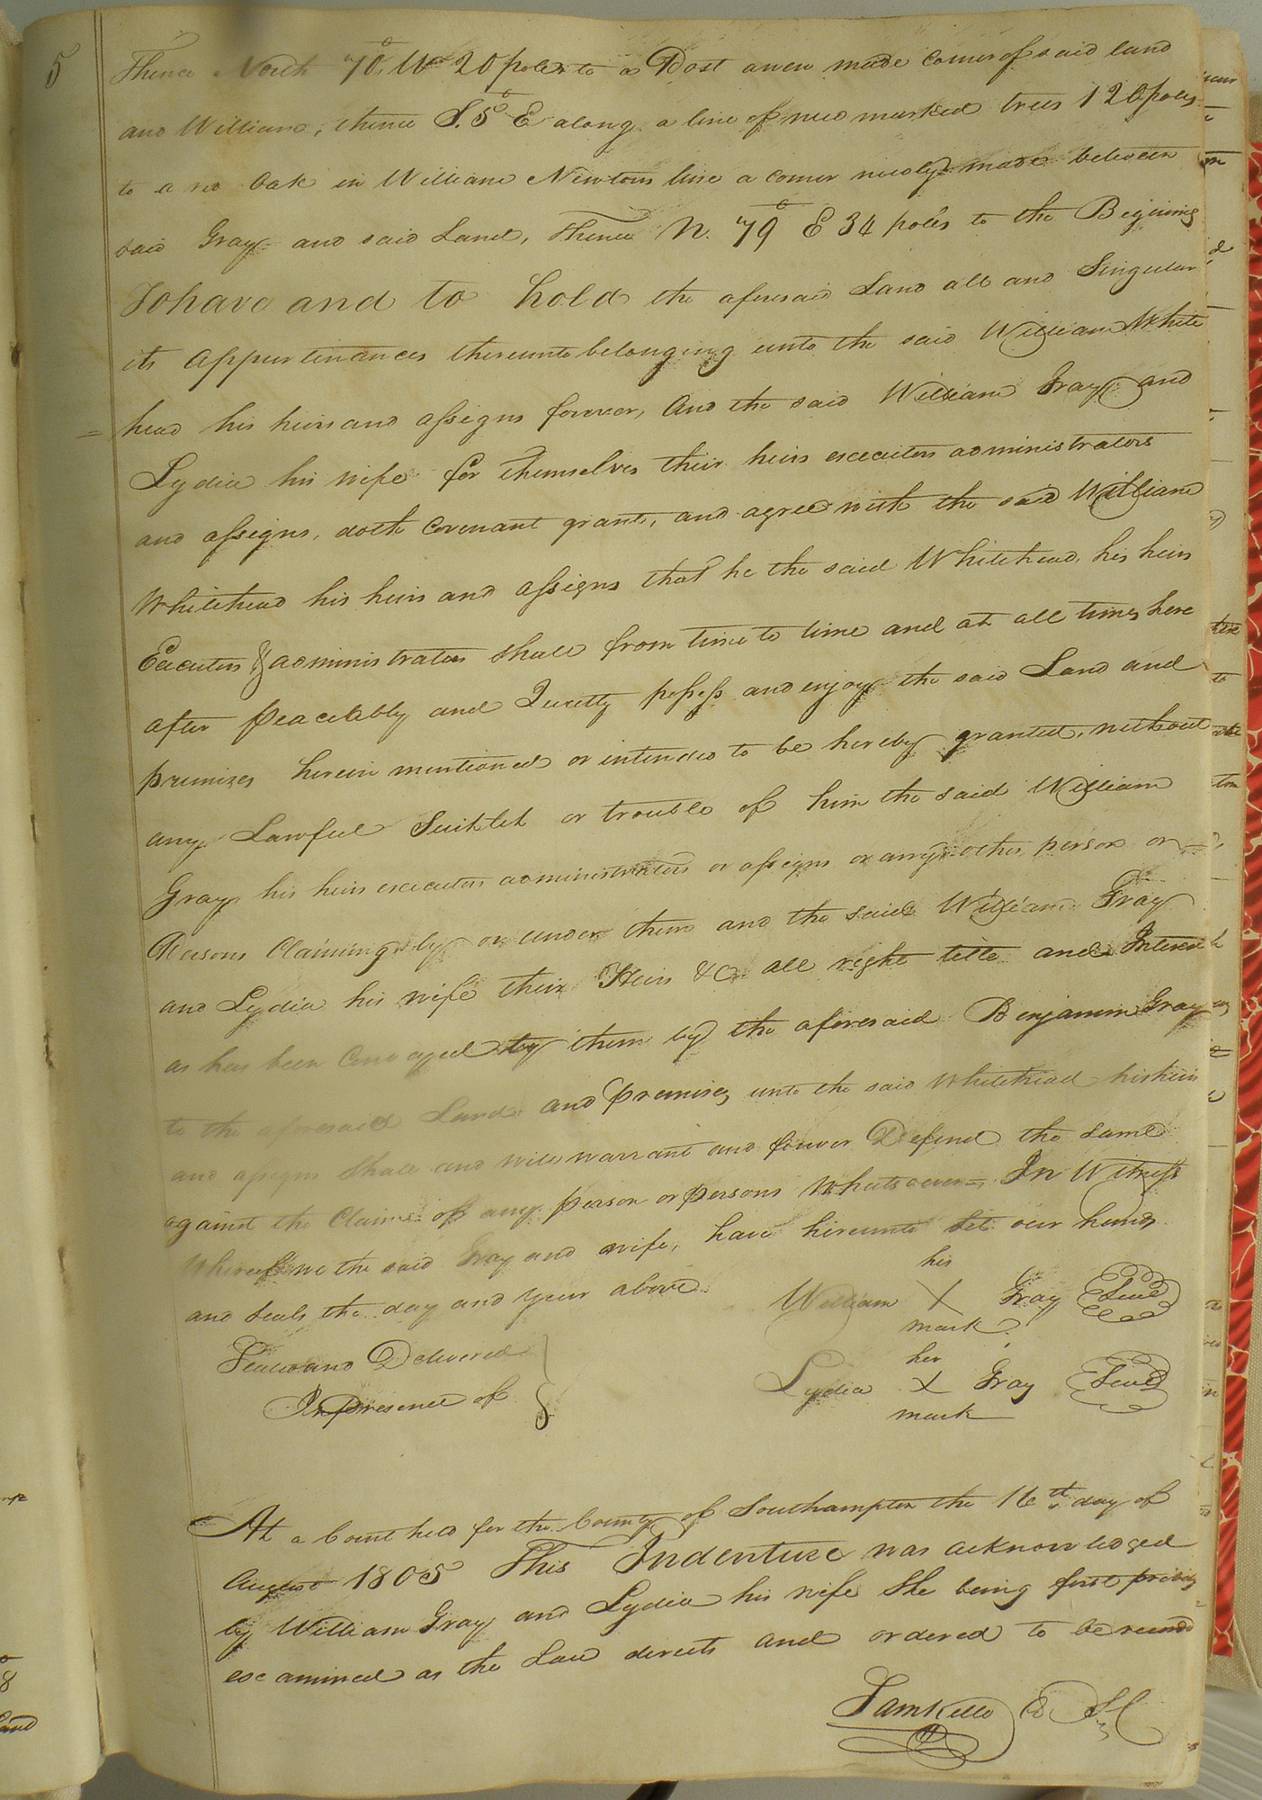 5
Thence North 70° W 20 poles to a Post a new made corner of said land
and William, thence S. 5° E along a line of new marked trees 120 poles
to a red Oak in William Newtons line a corner newly made between
said Gray and said Land, Thence N. 79° E 34 poles to the Begining
To have and to hold the aforesaid Land all and Singular
its appurtinances thereunto belonging unto the said William White
= head his heirs and assigns forever, And the said William Gray and
Lydia his wife for themselves their heirs executors administrators
and assigns, doth covenant grant, and agree with the said William
Whitehead his heirs and assigns that he the said Whitehead, his heirs
Executors & administrators shall from time to time and at all times here
after peaceably and Quietly possess and enjoy the said Land and
premises herein mentioned or intended to be hereby granted, without
any Lawful Suit let or trouble of him the said William
Gray his heirs executors administrators or assigns or any other person or
Persons Claiming by or under them and the said William Gray
and Lydia his wife their Heirs &C all right title and Interest
as has been Conveyed to them by the aforesaid Benjamin Gray
to the aforesaid Land and premises unto the said Whitehead his heirs
and assigns shall and will warrant and forever Defend the same
against the Claims of any person or persons Whatsoever = In Witness
Whereof we the said Gray and wife, have hereunto set our hands
and seals the day and year above
his
William X Gray Seal
mark
Seal and Delivered
In presence of
her
Lydia X Gray Seal
mark
At a Court held for the County of Southampton the 16th day of
August 1805 This Indenture was acknowledged
by William Gray and Lydia his wife She being first privily
examined as the Law directs and ordered to be recorded
Sam Kello